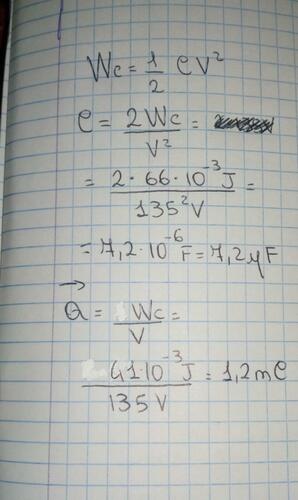 Wc = 1/2 CV²
C = 2Wc/V² =
= 2·66·10⁻³J/135²V =
= 7,2·10⁻⁶F = 7,2μF
→
Q = Wc/V =
41·10⁻³J/135V = 1,2mC